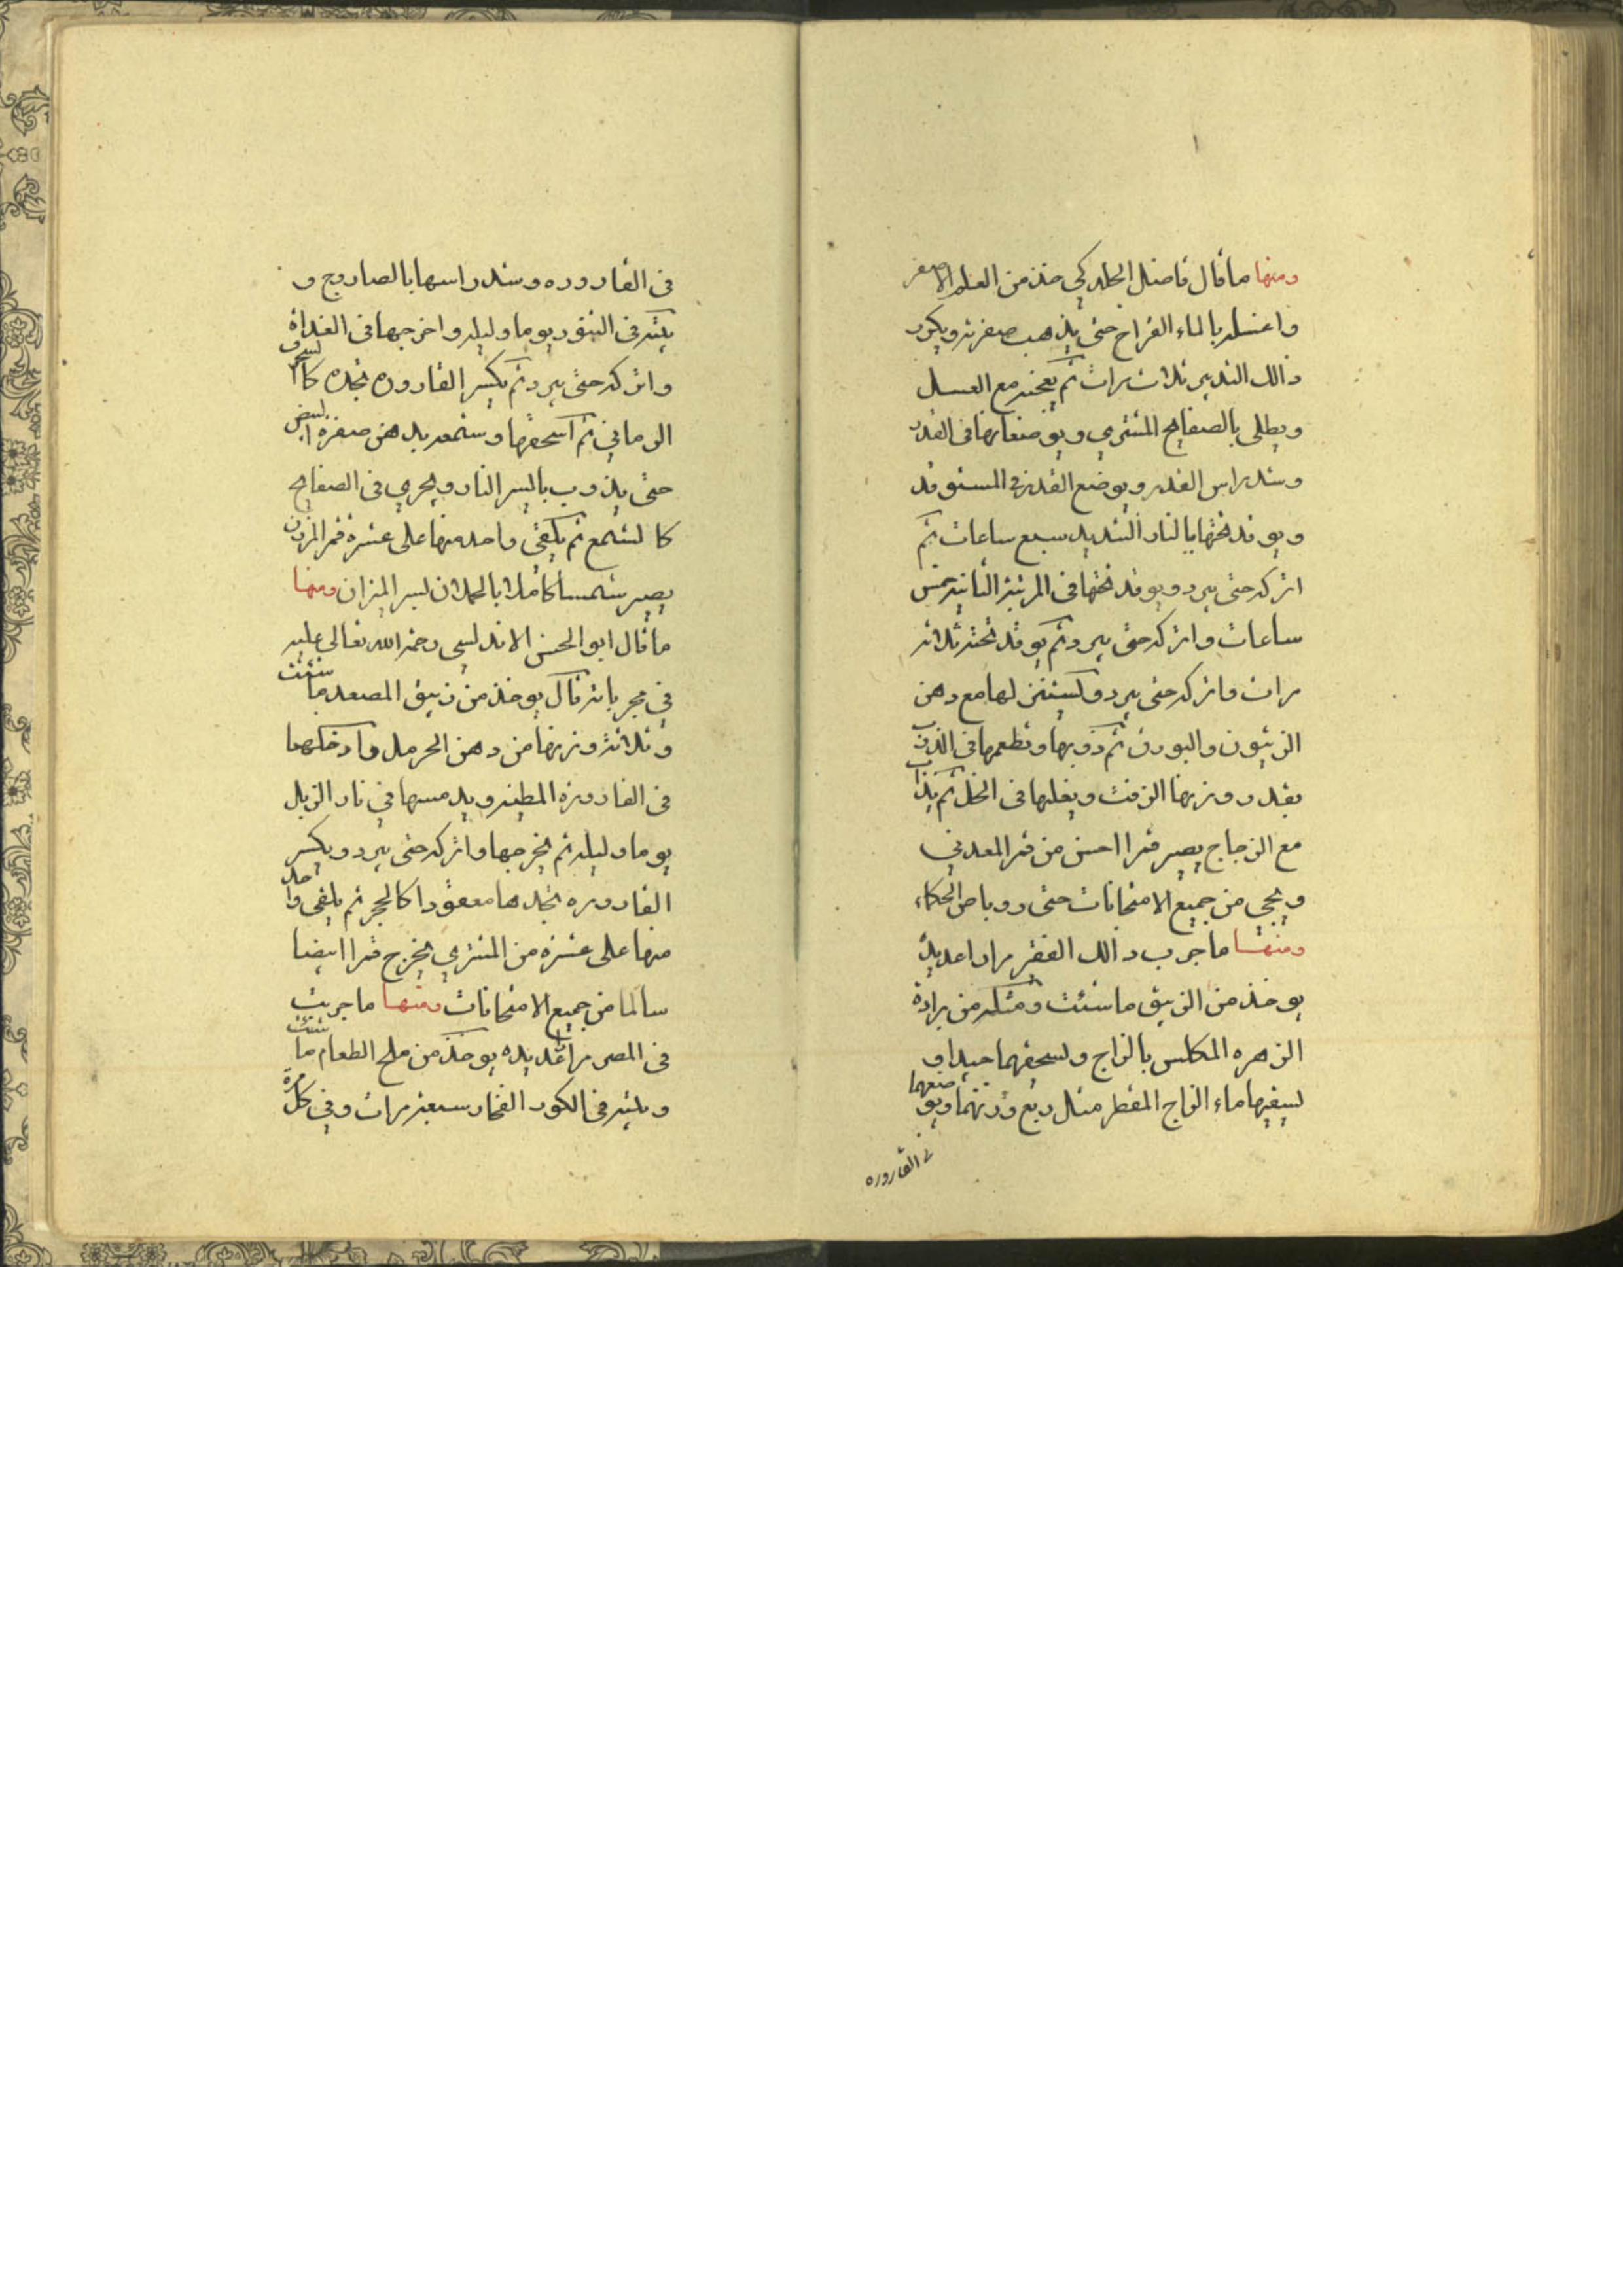 ومنها ما قال فاضل الجلدكي خذ من العلم الاصفر
واغسله بالماء القراح حتى يذهب صفرته ويكرر
ذالك التدبير ثلاث مرات ثم يعجنه مع العسل
ويطلى بالصفايح المشتري ويوضعا رها فى القدر
وشد راس القدر ويوضع القدر في المستوقد
ويوقد تحتها بالنار الشديد سبع ساعات ثم
اتركه حتى يبرد ويوقد تحتها فى المرتبة الثانية خمس
ساعات واتركه حتى يبرد ثم يوقد تحته ثلاثه
مرات واتركه حتى يبرد ويستنزلها مع دهن
الزيتون والبورق ثم ذوبها وتطعمها فى الذوب
بقدر وزنها الزفت ويغليها فى الخل ثم يذاب
مع الزجاج يصير قمرا احسن من قمر المعدني
وينجي من جميع الامتحانات حتى روباص الحكماء
ومنها ما جرب ذالك الفقير مرارا عديدة
يوخذ من الزيبق ما شئت ومثله من برادة
الزهره المكلس بالزاج ويسحقهما جيدا و
يسقيها ماء الزاج المقطر مثل ربع وزنهما ويوضعهما
في القاروره
فى القاروره وشد راسها بالصاروج و
يلثه فى التنور يوما وليله واخرجها فى الغداة
واتركه حتى يبرد ثم يكسر القاروره تجده كالسرف
الرماني ثم اسحقها وشمعه بدهن صفرة البيض
حتى يذوب باليسر النار ويجري فى الصفايح
كالشمع ثم يلقى واحد منها على عشرة قمر المرزن
يصير شمسا كاملا بالحملان ليسر الميزان ومنها
ما قال ابو الحسن الاندلسى رحمة الله تعالى عليه
في مجرباته قال يوخذ من زيبق المصعد ما شئت
وثلاثة وزنها من دهن الحرمل وادخلهما
فى القارورة المطينه ويدمسها في نار الزبل
يوما وليله ثم يخرجها واتركه حتى يبرد ويكسر
القاروره تجدها معقودا كالحجر ثم يلقى واحد
منها على عشرة من المشتري يخرج قمرا ابيضا
سالما من جميع الامتحانات ومنها ما جربت
فى المصر مرا عديده يوخذ من ملح الطعام ما شئت
ويلثه فى الكور الفخار سبعة مرات وفي كل مرة